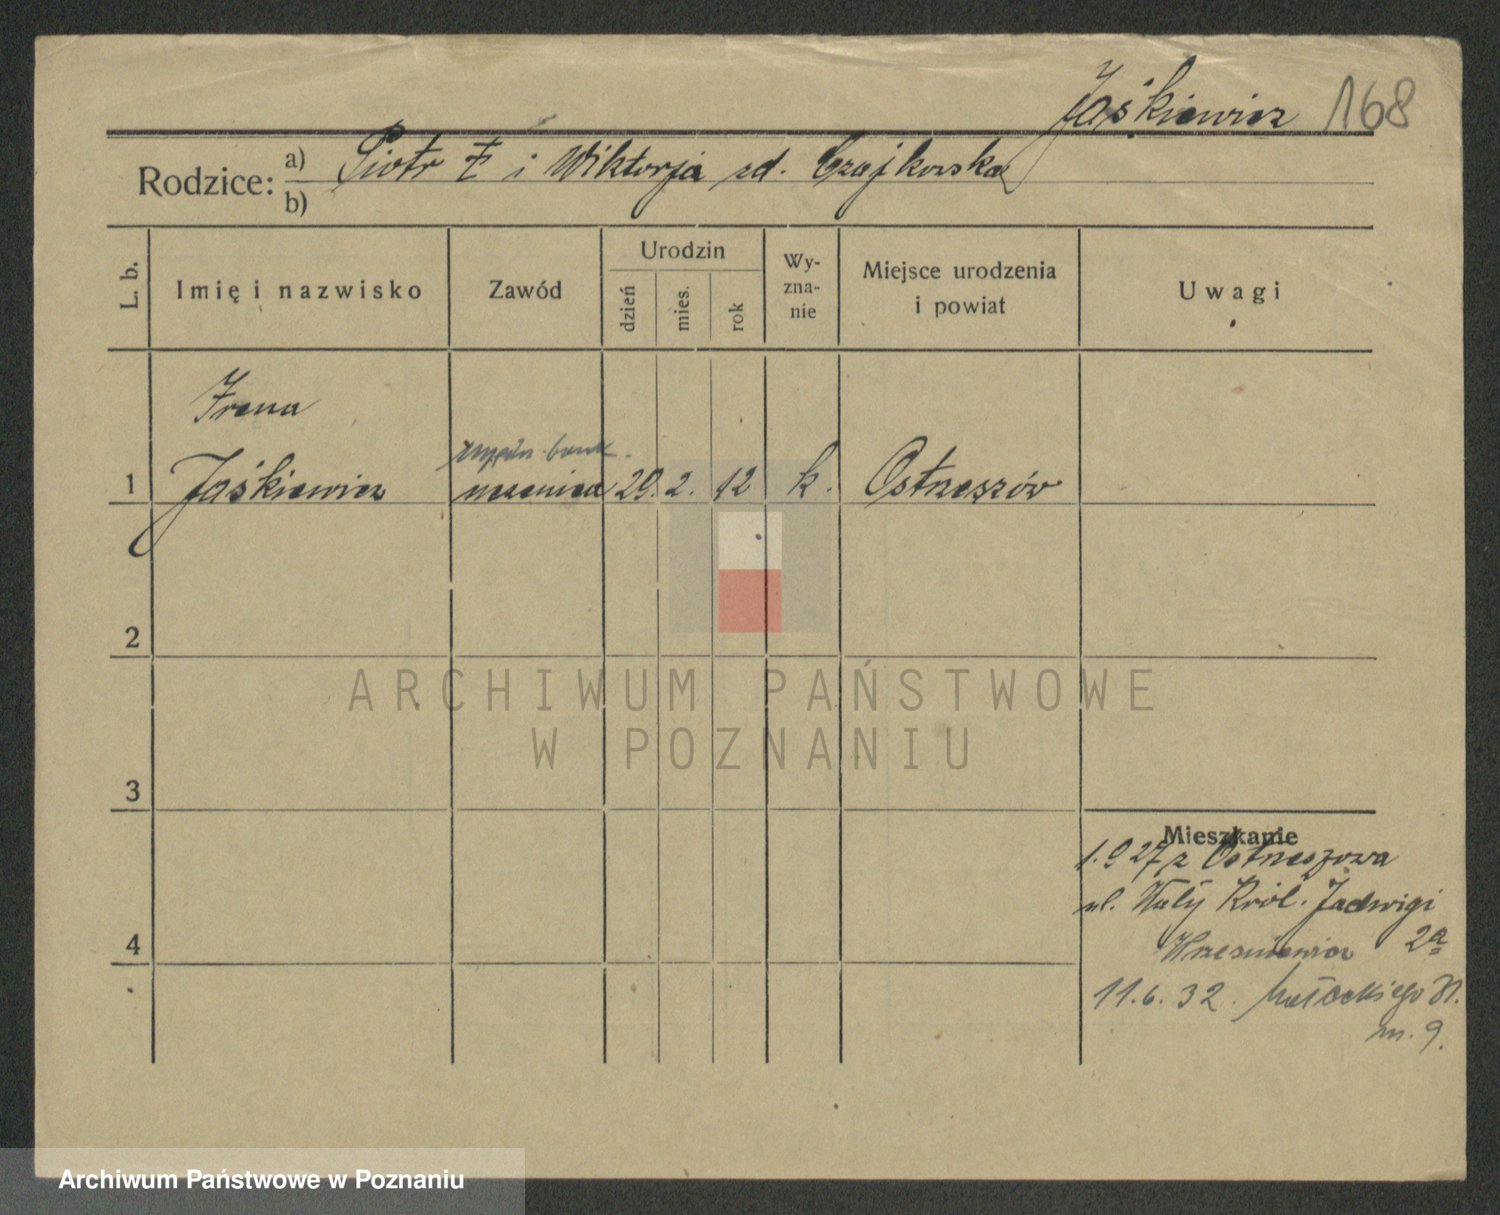 Jaśkiewicz 168
Rodzice: a) Piotr i Wiktorja zd. Czajkowska
b)
L. b.
Imię i nazwisko
Zawód
Urodzin
dzień
mies.
rok
Wy-
zna-
nie
Miejsce urodzenia
i powiat
Uwagi
Irena
urzędn. bank.
1 Jaśkiewicz uczenica 29. 2. 12 k. Ostrzeszów
2
ARCHIWUM PAŃSTWOWE
W POZNANIU
3
Mieszkanie
1.9 27 z Ostrzeszowa
ul. Wały Król. Jadwigi
2a
4
11.6.32. Małeckiego
m. 9.
Archiwum Państwowe w Poznaniu